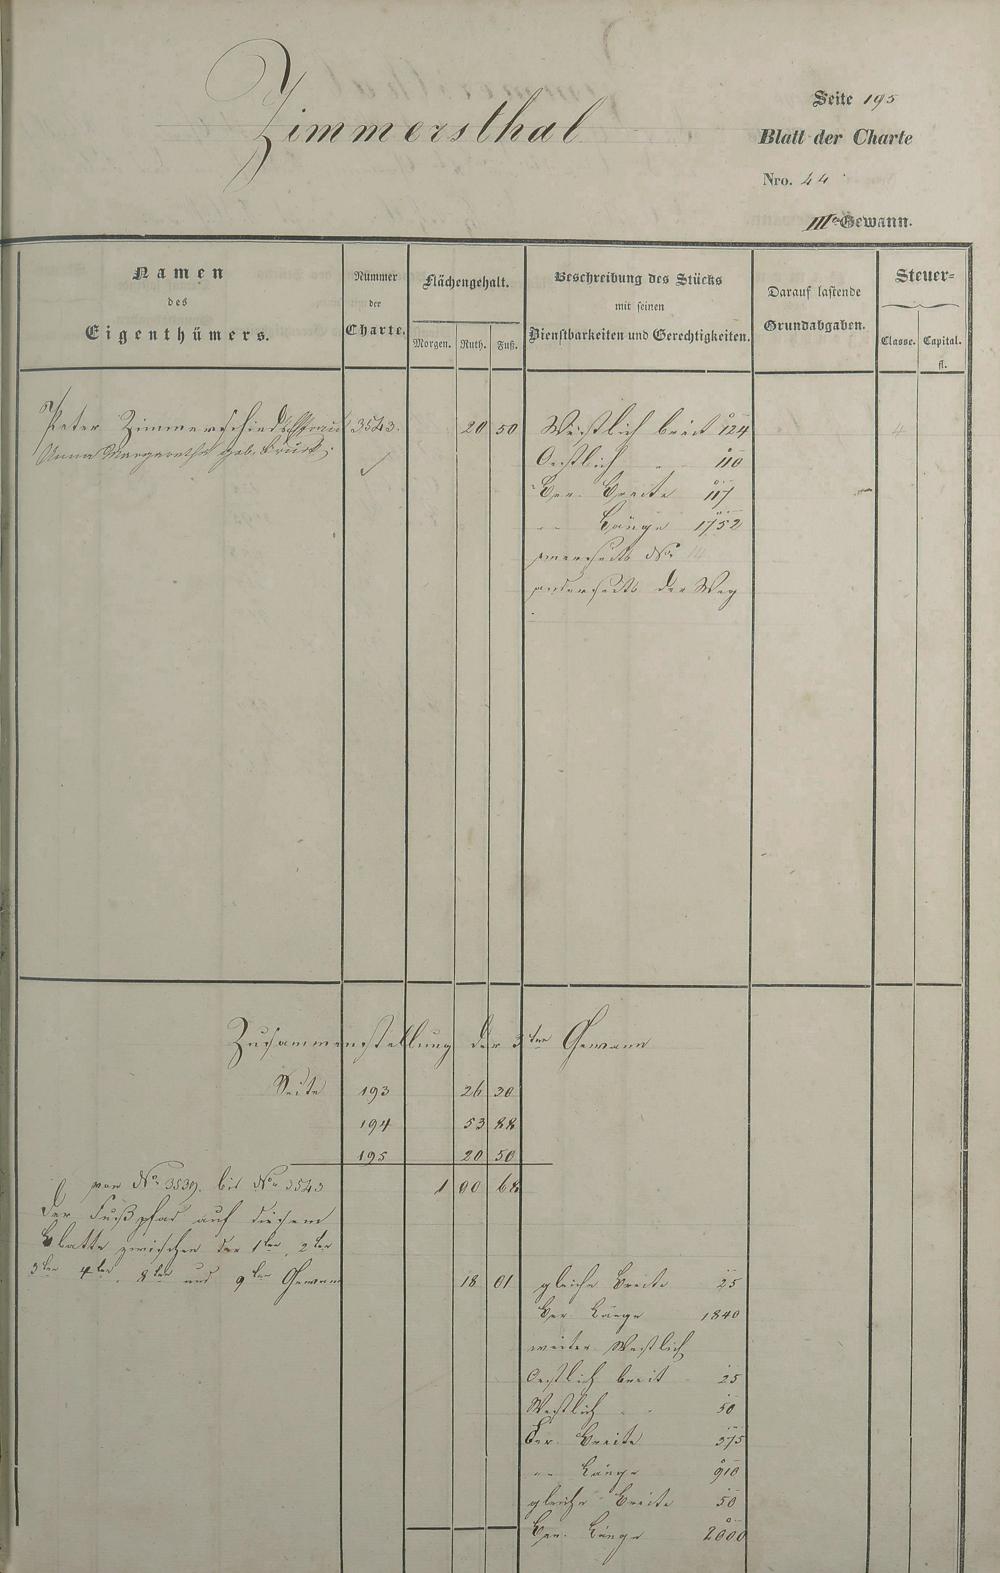 Zimmersthal
Seite 195
Blatt der Charte
Nro. 44
IIIte Gewann.
Namen
des
Eigenthümers.
Nummer
der
Charte.
Flächengehalt.
Morgen. Ruth. Fuß.
Beschreibung des Stücks
mit seinen
Dienstbarkeiten und Gerechtigkeiten.
Darauf lastende
Grundabgaben.
Steuer-
Classe. Capital.
fl.
Peter Zimmerschieds Ehefrau 3543. 20 50 Westlich breit 124
Anna Margaretha geb.
Oestlich " " 110
Ber. Breite 117
" Länge 1752
einerseits No.
anderseits der Weg
Zusammenstellung der 3ten Gewann
Seite 193 26 30
194 53 88
195 20 50
von No. 3539. bis No. 3543 1 00 68
Der Fußpfad auf diesem
Blatte zwischen der 1ten, 2ten
3ten 4ten, 8ten und 9ten Gewann 18 01 gleiche Breite 25
Ber. Länge 1840
weiter Westlich
Oestlich breit 25
Westlich " " 50
Ber. Breite 375
" Länge 910
gleiche Breite 50
Ber. Länge 2000